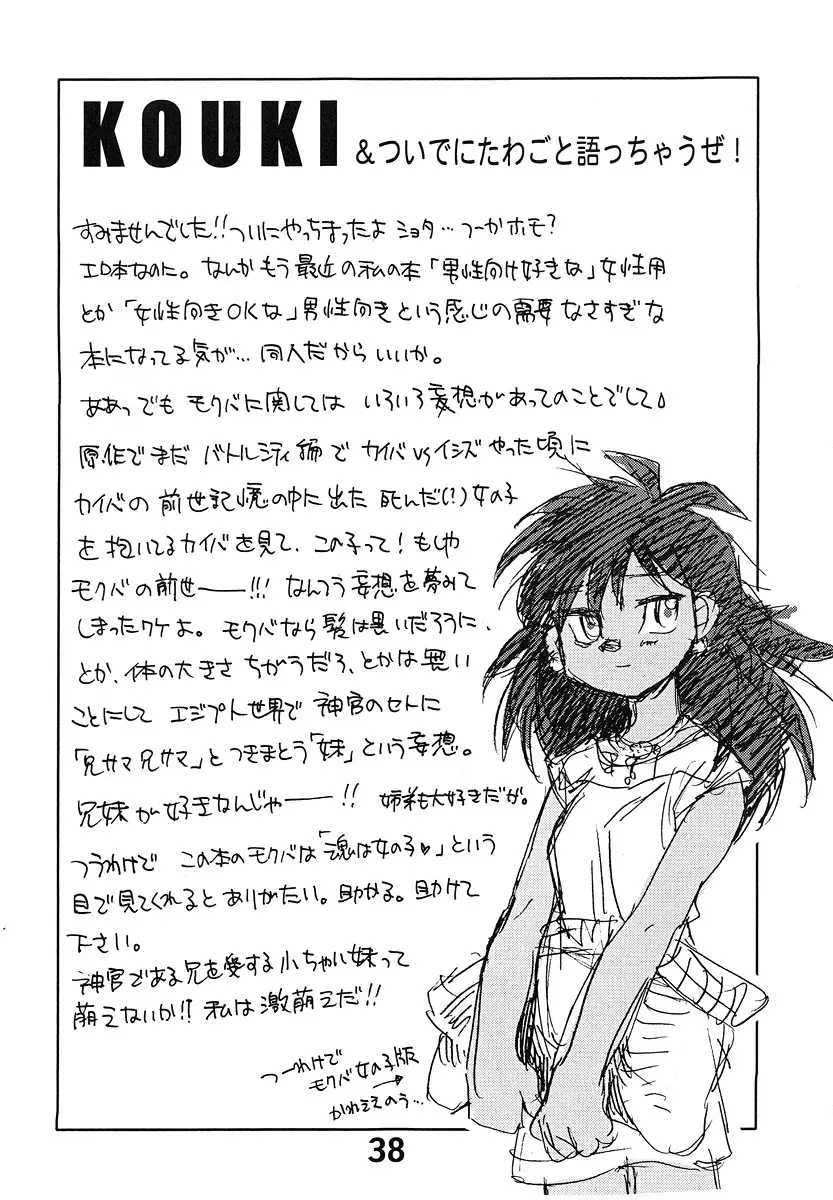 KOUKI &ついでにたわごと語っちゃうぜ!
すみませんでした!!ついにやっちまったよ ショタ…つーかホモ?
エロ本なのに。なんかもう最近の私の本「男性向け好きな」女性用
とか「女性向きOKな」男性向きという感じの需要なさすぎな
本になってる気が…同人だからいいか。
ああっでも モクバに関しては いろいろ妄想があってのことでして
原作でまだ バトルシティ編で カイバvsイシズやった頃に
カイバの前世記憶の中に出た 死んだ(!)女の子
を抱いてるカイバを見て、この子って!もしや
モクバの前世――!!! なんつう妄想を夢みて
しまったワケよ。モクバなら髪は黒いだろうに、
とか、体の大きさちがうだろ、とかは無い
ことにして エジプト世界で 神官のセトに
「兄サマ兄サマ」とつきまとう「妹」という妄想。
兄妹が好きなんじゃ――!! 姉弟も大好きだが。
つうわけで この本のモクバは「魂は女の子♥」という
目で見てくれるとありがたい。助かる。助けて
下さい。
神官である兄を愛する小ちゃい妹って
萌えないか!? 私は激萌えだ!!
つーわけで
モクバ女の子版→
かわええのう…
38